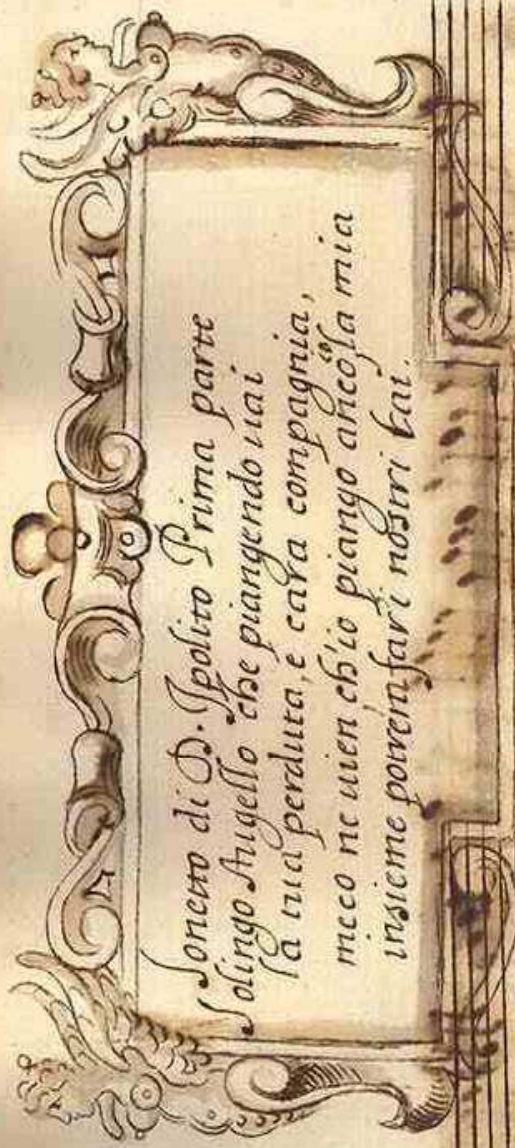 Sonetto di D. Ipolito Prima parte
Solingo Augello che piangendo uai
la tua perduta, e cara compagnia,
meco ne uien ch'io piango anco la mia
insieme potrem fari nostri lai.